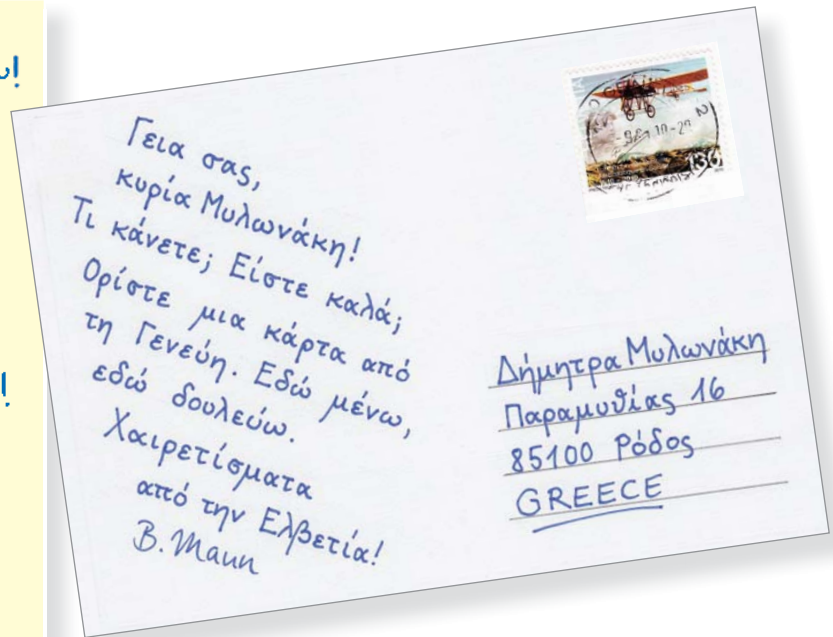 Γεια σας,
κυρία Μυλωνάκη!
Τι κάνετε; Είστε καλά;
Ορίστε μια κάρτα από
τη Γενεύη. Εδώ μένω,
εδώ δουλεύω.
Χαιρετίσματα
από την Ελβετία!
B. Maun
Δήμητρα Μυλωνάκη
Παραμυθίας 16
85100 Ρόδος
GREECE
130